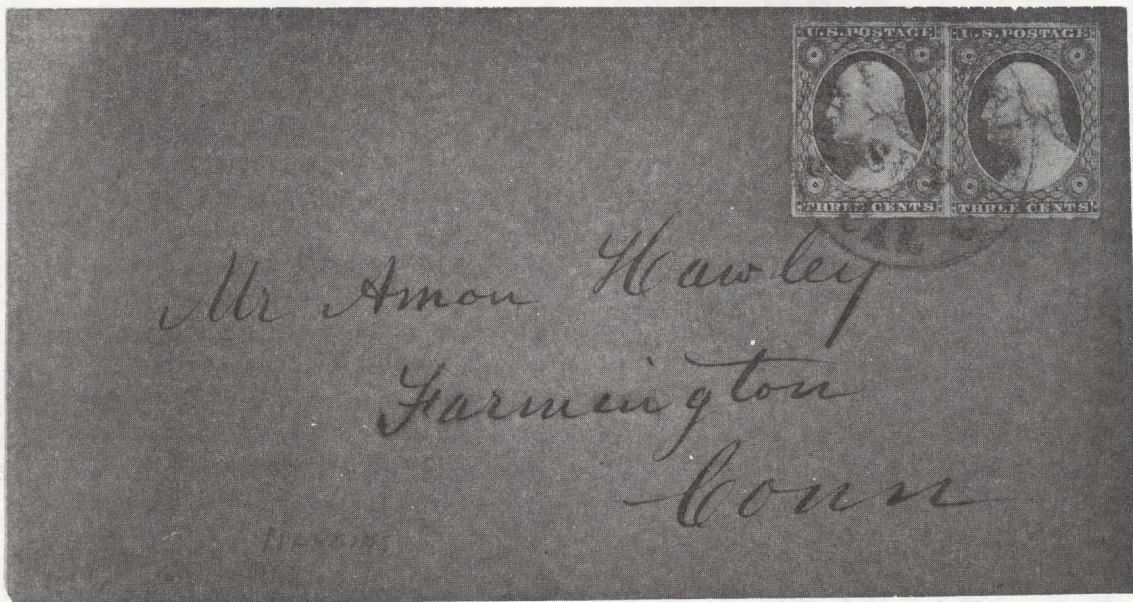 U.S. POSTAGE U.S. POSTAGE
THREE CENTS THREE CENTS
CAL
Mr Amon Hawley
Farmington
Conn